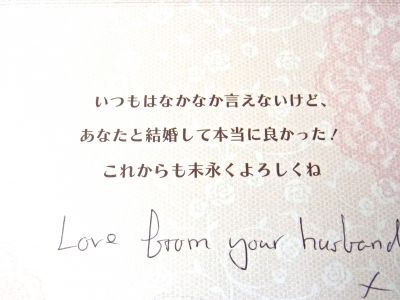 いつもはなかなか言えないけど、
あなたと結婚して本当に良かった！
これからも末永くよろしくね
Love from your husband
x